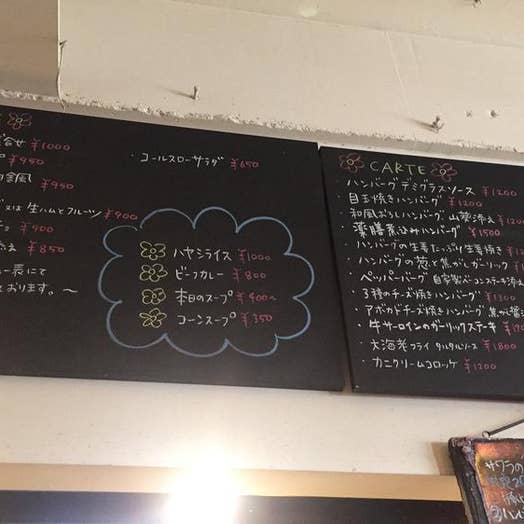 ¥1000
¥950
¥950
は生ハムとフルーツ ¥900
¥900
¥850
に一表にて
おります。〜
・コールスローサラダ ¥650
ハヤシライス ¥1000
ビーフカレー ¥800
本日のスープ ¥400〜
コーンスープ ¥350
CARTE
・ハンバーグデミグラスソース ¥1200
目玉焼きハンバーグ ¥1200
・和風おろしハンバーグ 山葵添え ¥1200
・薬膳煮込みハンバーグ ¥1500
・ハンバーグの生姜たっぷり生姜焼き
・ハンバーグの葱と焦がしガーリック
・ペッパーバーグ 自家製ベーコンステーキ添え
・3種のチーズ焼きハンバーグ ¥1300
・アボカドチーズ焼きハンバーグ 焦がし醤
・牛サーロインのガーリックステーキ
・大海老フライ タルタルソース ¥1800
・カニクリームコロッケ ¥1200
サワラの